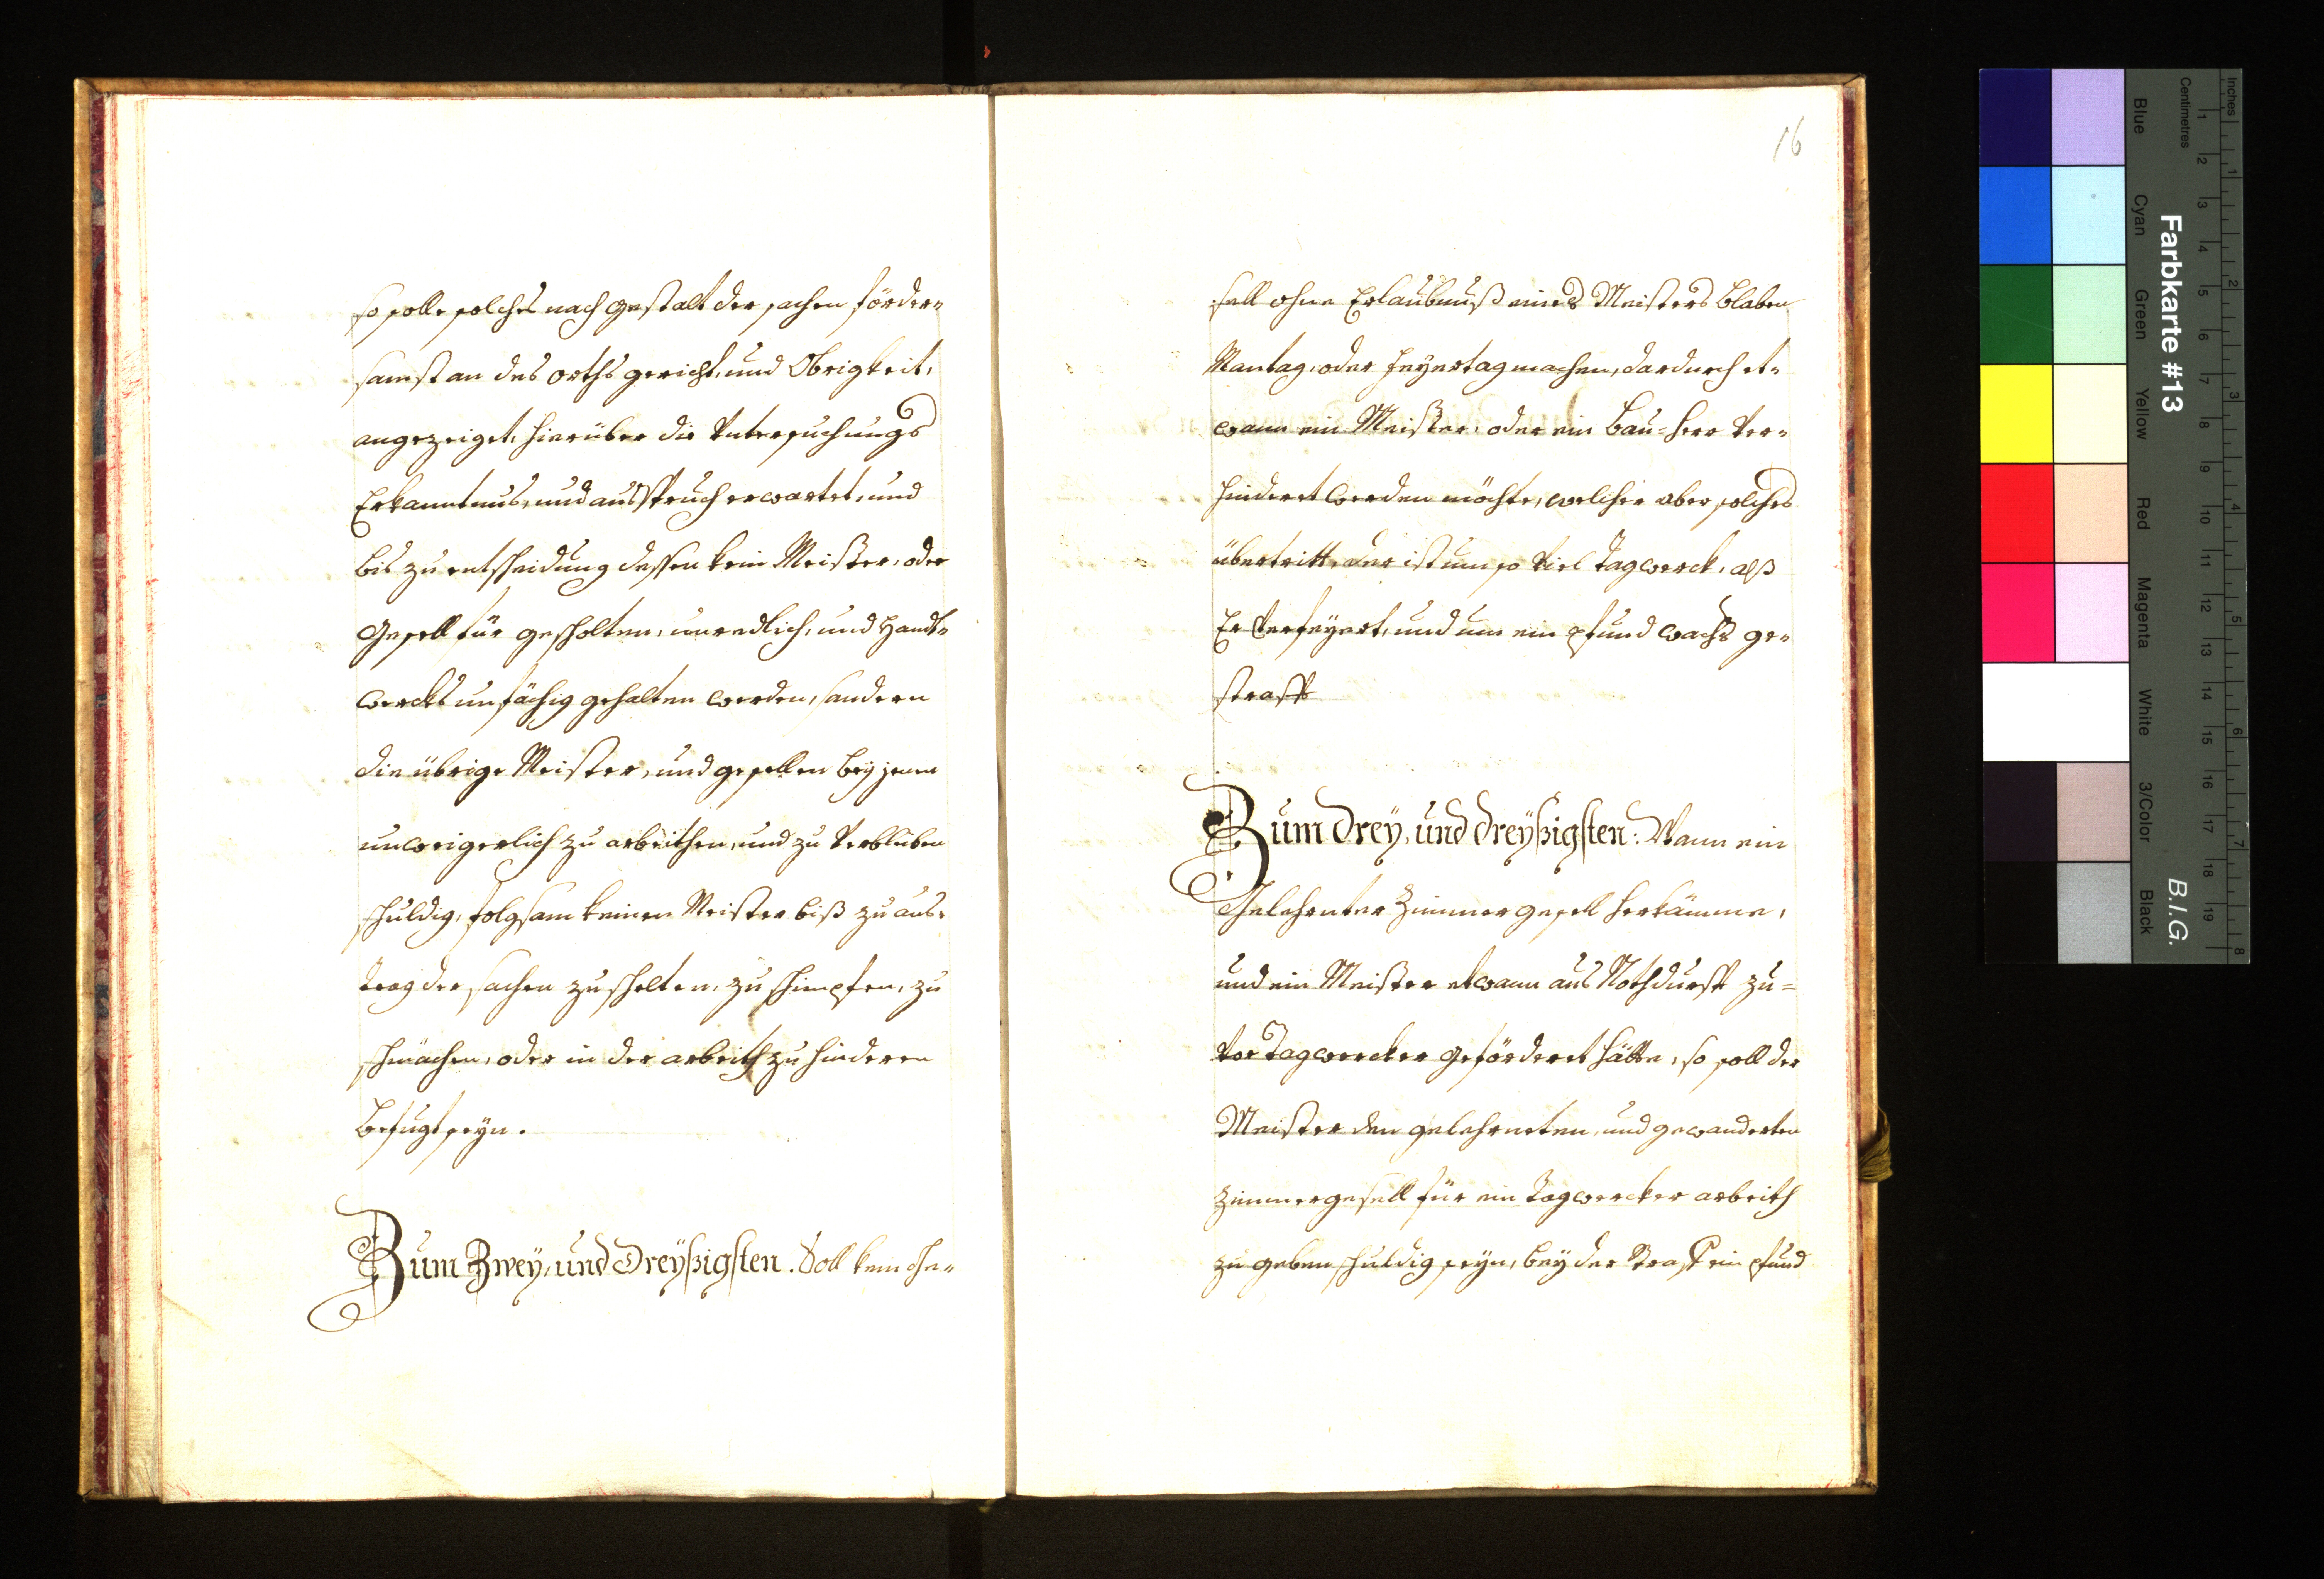 so solle solches nach gestalt der sachen förder=
samst an des orths gericht, und Obrigkeit,
angezeiget, hierüber die Untersuchungs
Erkanntnus, und ausspruch erwartet, und
bis zu entscheidung dessen kein Meister, oder
Gesell für gescholten, unredlich, und Handt=
wercks unfächig gehalten werden, sondern
die übrige Meister, und gesellen bey jenen
unweigerlich zu arbeithen, und zu verbleiben
schuldig, folgsam keinen Meister biß zu aus=
trag der sachen zu schelten, zu schimpfen, zu
schmächen, oder in der arbeith zu hinderen
befugt seyn.
Zum Zwey, und Dreyßigsten. Soll kein Ge=
16
sell ohne Erlaubnuß eines Meisters blaben
Mantag, oder Feyertag machen, dardurch et=
wann ein Meister, oder ein Bau=herr ver=
hindert werden möchte, welcher aber solches
übertritt, der ist um so viel Tagwerck, alß
Er verfeyert, und um ein pfund wachs ge=
strafft
Zum Drey, und Dreyßigsten: Wann ein
Gelehrnter Zimmer gesell herkämme,
und ein Meister etwann aus Nothdurfft zu=
vor Tagwercker geförderet hätte, so soll der
Meister den gelehrneten, und gewanderten
Zimmergesell für ein Tagwercker arbeith
zu geben schuldig seyn, bey der Straff ein pfund
Farbkarte #13
B.I.G.
Inches
Centimetres
Blue
Cyan
Green
Yellow
Red
Magenta
White
3/Color
Black
1 2 3 4 5 6 7 8 9 10 11 12 13 14 15 16 17 18 19
1 2 3 4 5 6 7 8